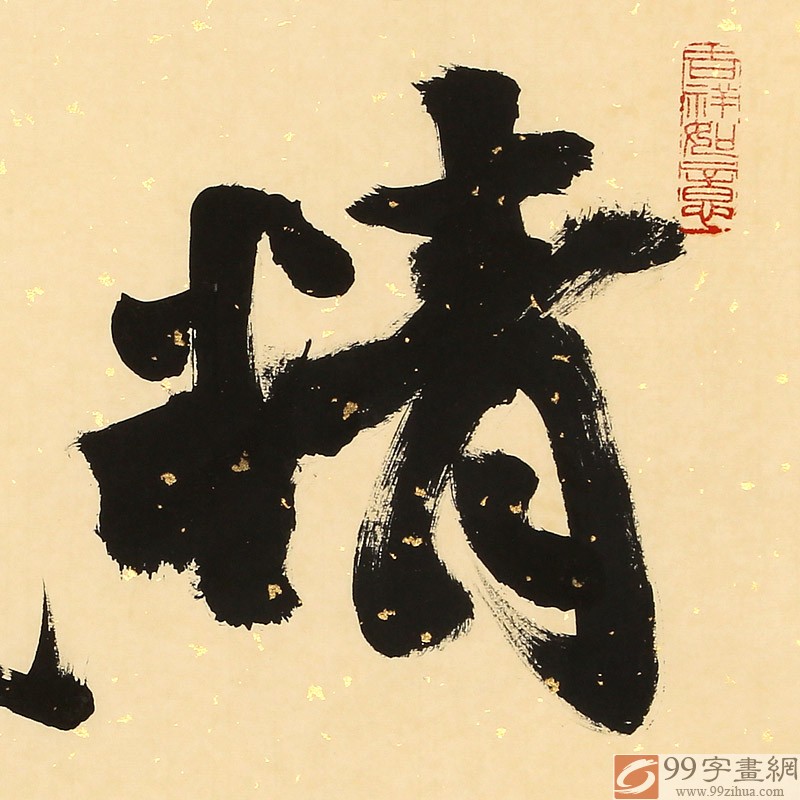 精
吉祥如意
99字畫網
www.99zihua.com